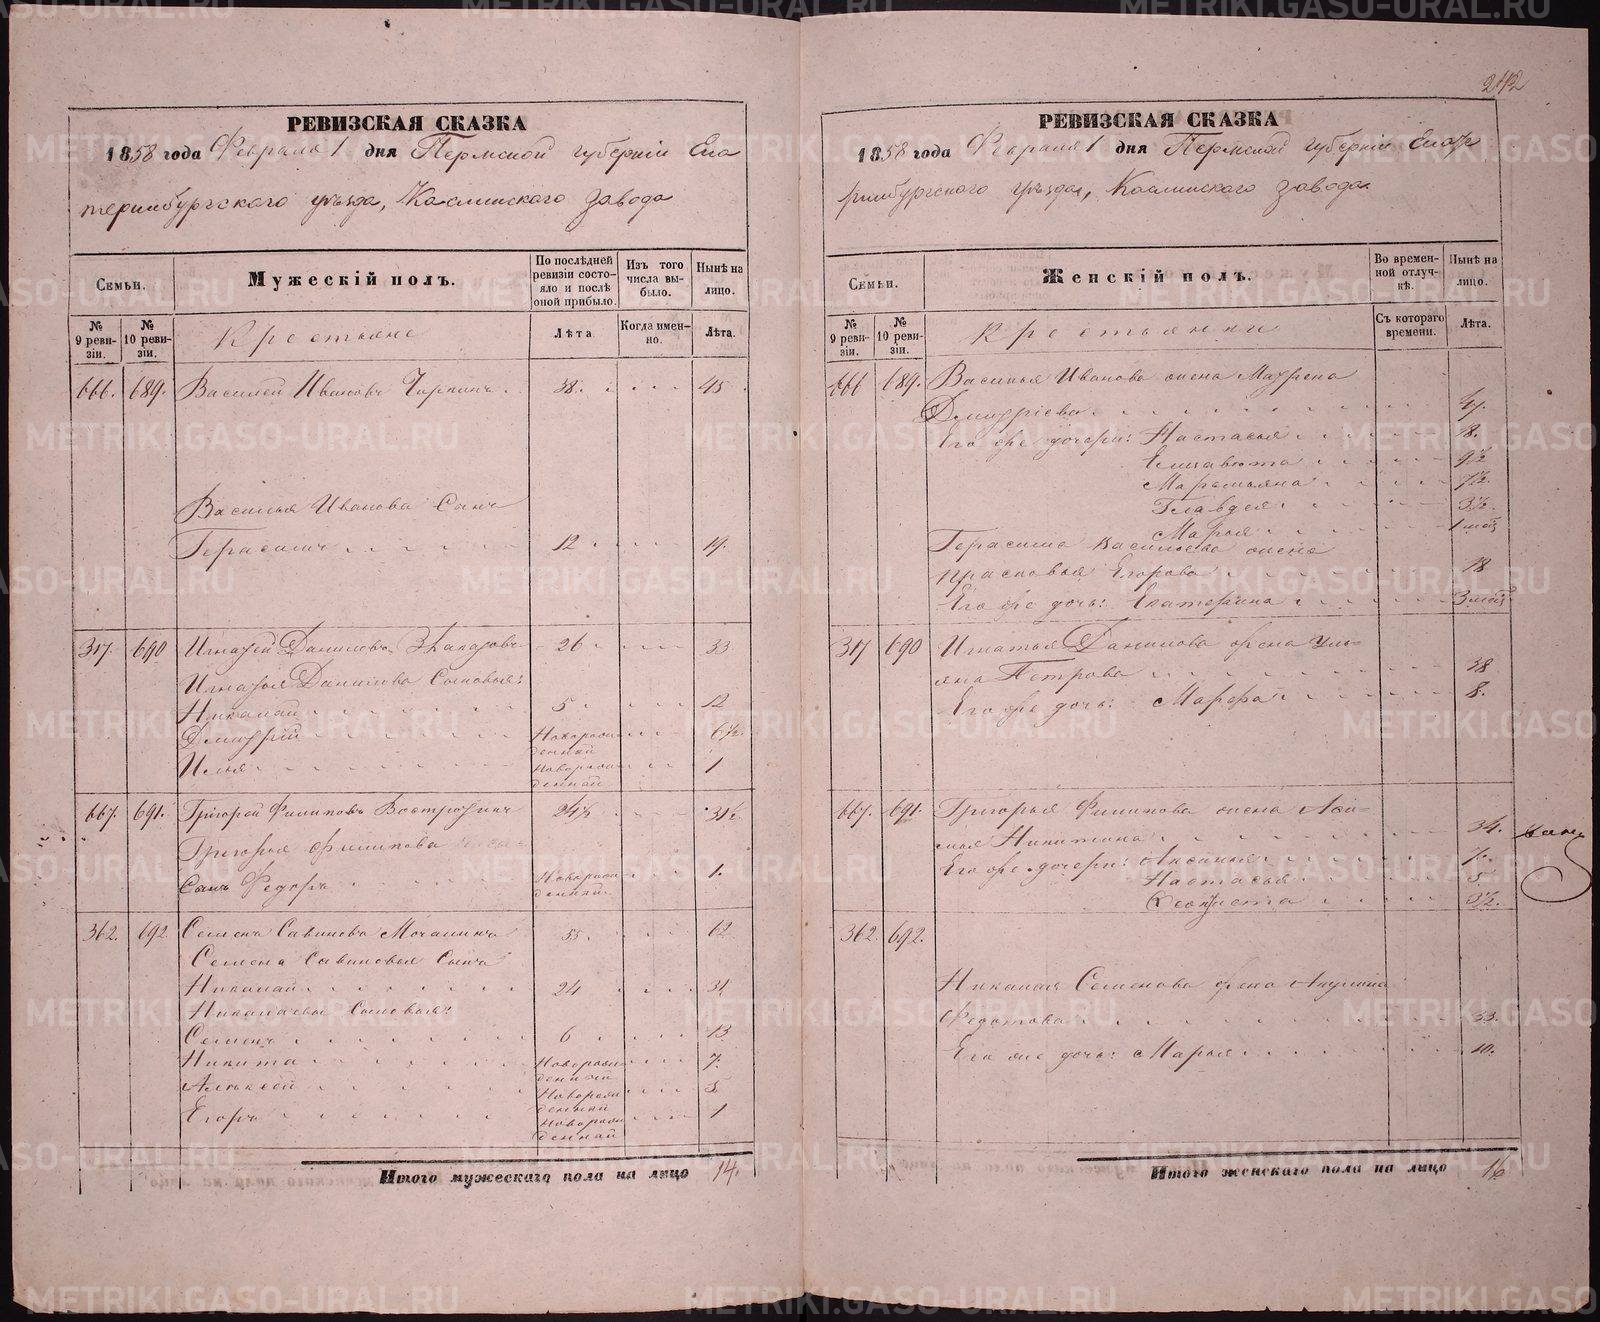 242
РЕВИЗСКАЯ СКАЗКА
1858 года Февраля 1 дня Пермской губерніи Ека
теринбургскаго уѣзда, Каслинскаго завода
Семьи.
Мужескій полъ.
По послѣдней ревизіи состояло и послѣ оной прибыло.
Изъ того числа выбыло.
Нынѣ на лицо.
№ 9 ревизіи.
№ 10 ревизіи.
Крестьяне
Лѣта
Когда именно.
Лѣта.
666. 689. Василей Ивановъ 38. 45
Василья Иванова Сынъ
Герасимъ 12 19.
317. 690 Игнатей Даниловъ 26 33
Игнатья Данилова Сыновья:
Николай 5 12
Дмитрій Новорожденный 6½
Илья Новорожденный 1
667. 691. Григорей Филиповъ Востротинъ 24½ 31½
Григорья Филипова
Сынъ Федоръ Новорожденный 1.
362. 692. Семенъ Савиновъ Мочалинъ 55. 62
Семена Савиновыя Сынъ
Николай 24 31
Николаевы Сыновья:
Семенъ 6 13
Никита Новорожденный 7.
Алексей Новорожденный 5
Егоръ Новорожденный 1
Итого мужескаго пола на лицо 14.
РЕВИЗСКАЯ СКАЗКА
1858 года Февраля 1 дня Пермской губерніи Екате
ринбургскаго уѣзда, Каслинскаго завода
Семьи.
Женскій полъ.
Во временной отлучкѣ.
Нынѣ на лицо.
№ 9 ревизіи.
№ 10 ревизіи.
Крестьянки
Съ котораго времени.
Лѣта.
666 689. Василья Иванова жена Маѳрена
Дмитріева
Его же дочери: Настасья 18.
Елизавета 9½
Маремьяна 7½
Главдея 3½
Марья 1 мѣс
Герасима Васильева жена
Прасковья Егорова 18
Его же дочь: Екатерина 3 мѣс
317 690 Игнатья Данилова жена Уль-
яна Петрова 38
Его же дочь: Марфа 8.
667. 691. Григорья Филипова жена
Никитина 34.
Его же дочери: Аксинья 7.
Настасья 5
Феоктиста 3½.
362. 692.
Николая Семенова жена Акулина
Федотова 33.
Его же дочь: Марья 10.
Итого женскаго пола на лицо 16
METRIKI.GASO-URAL.RU